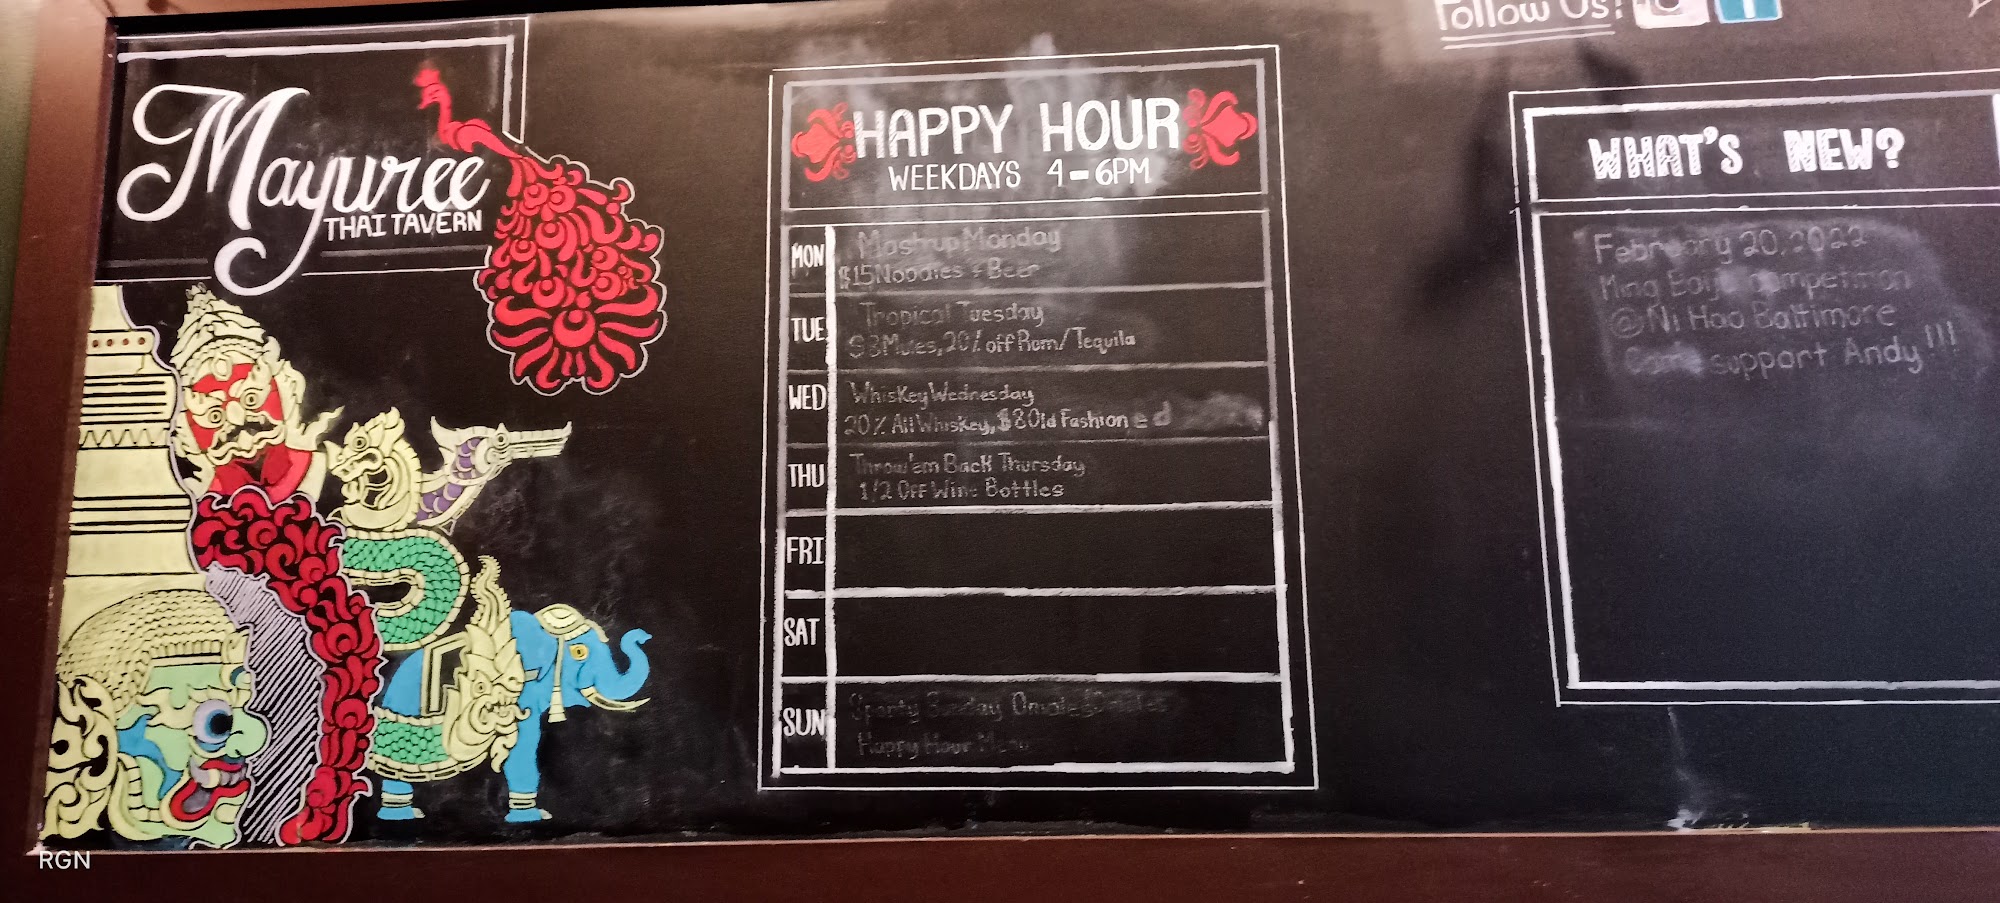 Mayuree
THAI TAVERN
Follow Us!
HAPPY HOUR
WEEKDAYS 4-6PM
MON
Mashup Monday
$15 Noodles + Beer
TUE
Tropical Tuesday
$3 Mules, 20% off Rum/Tequila
WED
Whiskey Wednesday
20% All Whiskey, $8 Old Fashioned
THU
Throw'em Back Thursday
1/2 Off Wine Bottles
FRI
SAT
SUN
Sunday
Happy Hour Menu
WHAT'S NEW?
February 20, 2022
Ming competition
@ Ni Hao Baltimore
Come support Andy!!!
RGN